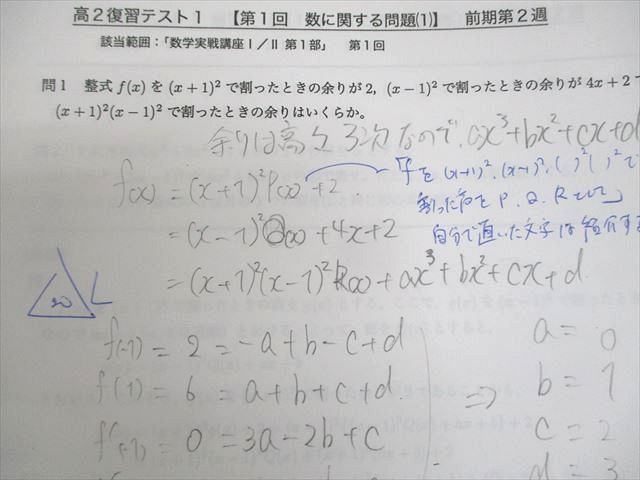 高2復習テスト1 【第1回 数に関する問題(1)】 前期第2週
該当範囲：「数学実戦講座Ⅰ／Ⅱ 第1部」 第1回
問1 整式 f(x) を (x+1)² で割ったときの余りが 2, (x−1)² で割ったときの余りが 4x+2
(x+1)²(x−1)² で割ったときの余りはいくらか。
余りは高々3次なので, ax³+bx²+cx+d
f(x) = (x+1)²P(x)+2
「fを(x+1)²,(x-1)²,( )²( )²で
割った商を P, Q, R とし」
= (x-1)²Q(x)+4x+2
自分で置いた文字は紹介する
= (x+1)²(x-1)²R(x)+ax³+bx²+cx+d
20
f(-1) = 2 = -a+b-c+d
f(1) = 6 = a+b+c+d
f'(-1) = 0 = 3a-2b+c
⇒
a = 0
b = 1
c = 2
d = 3